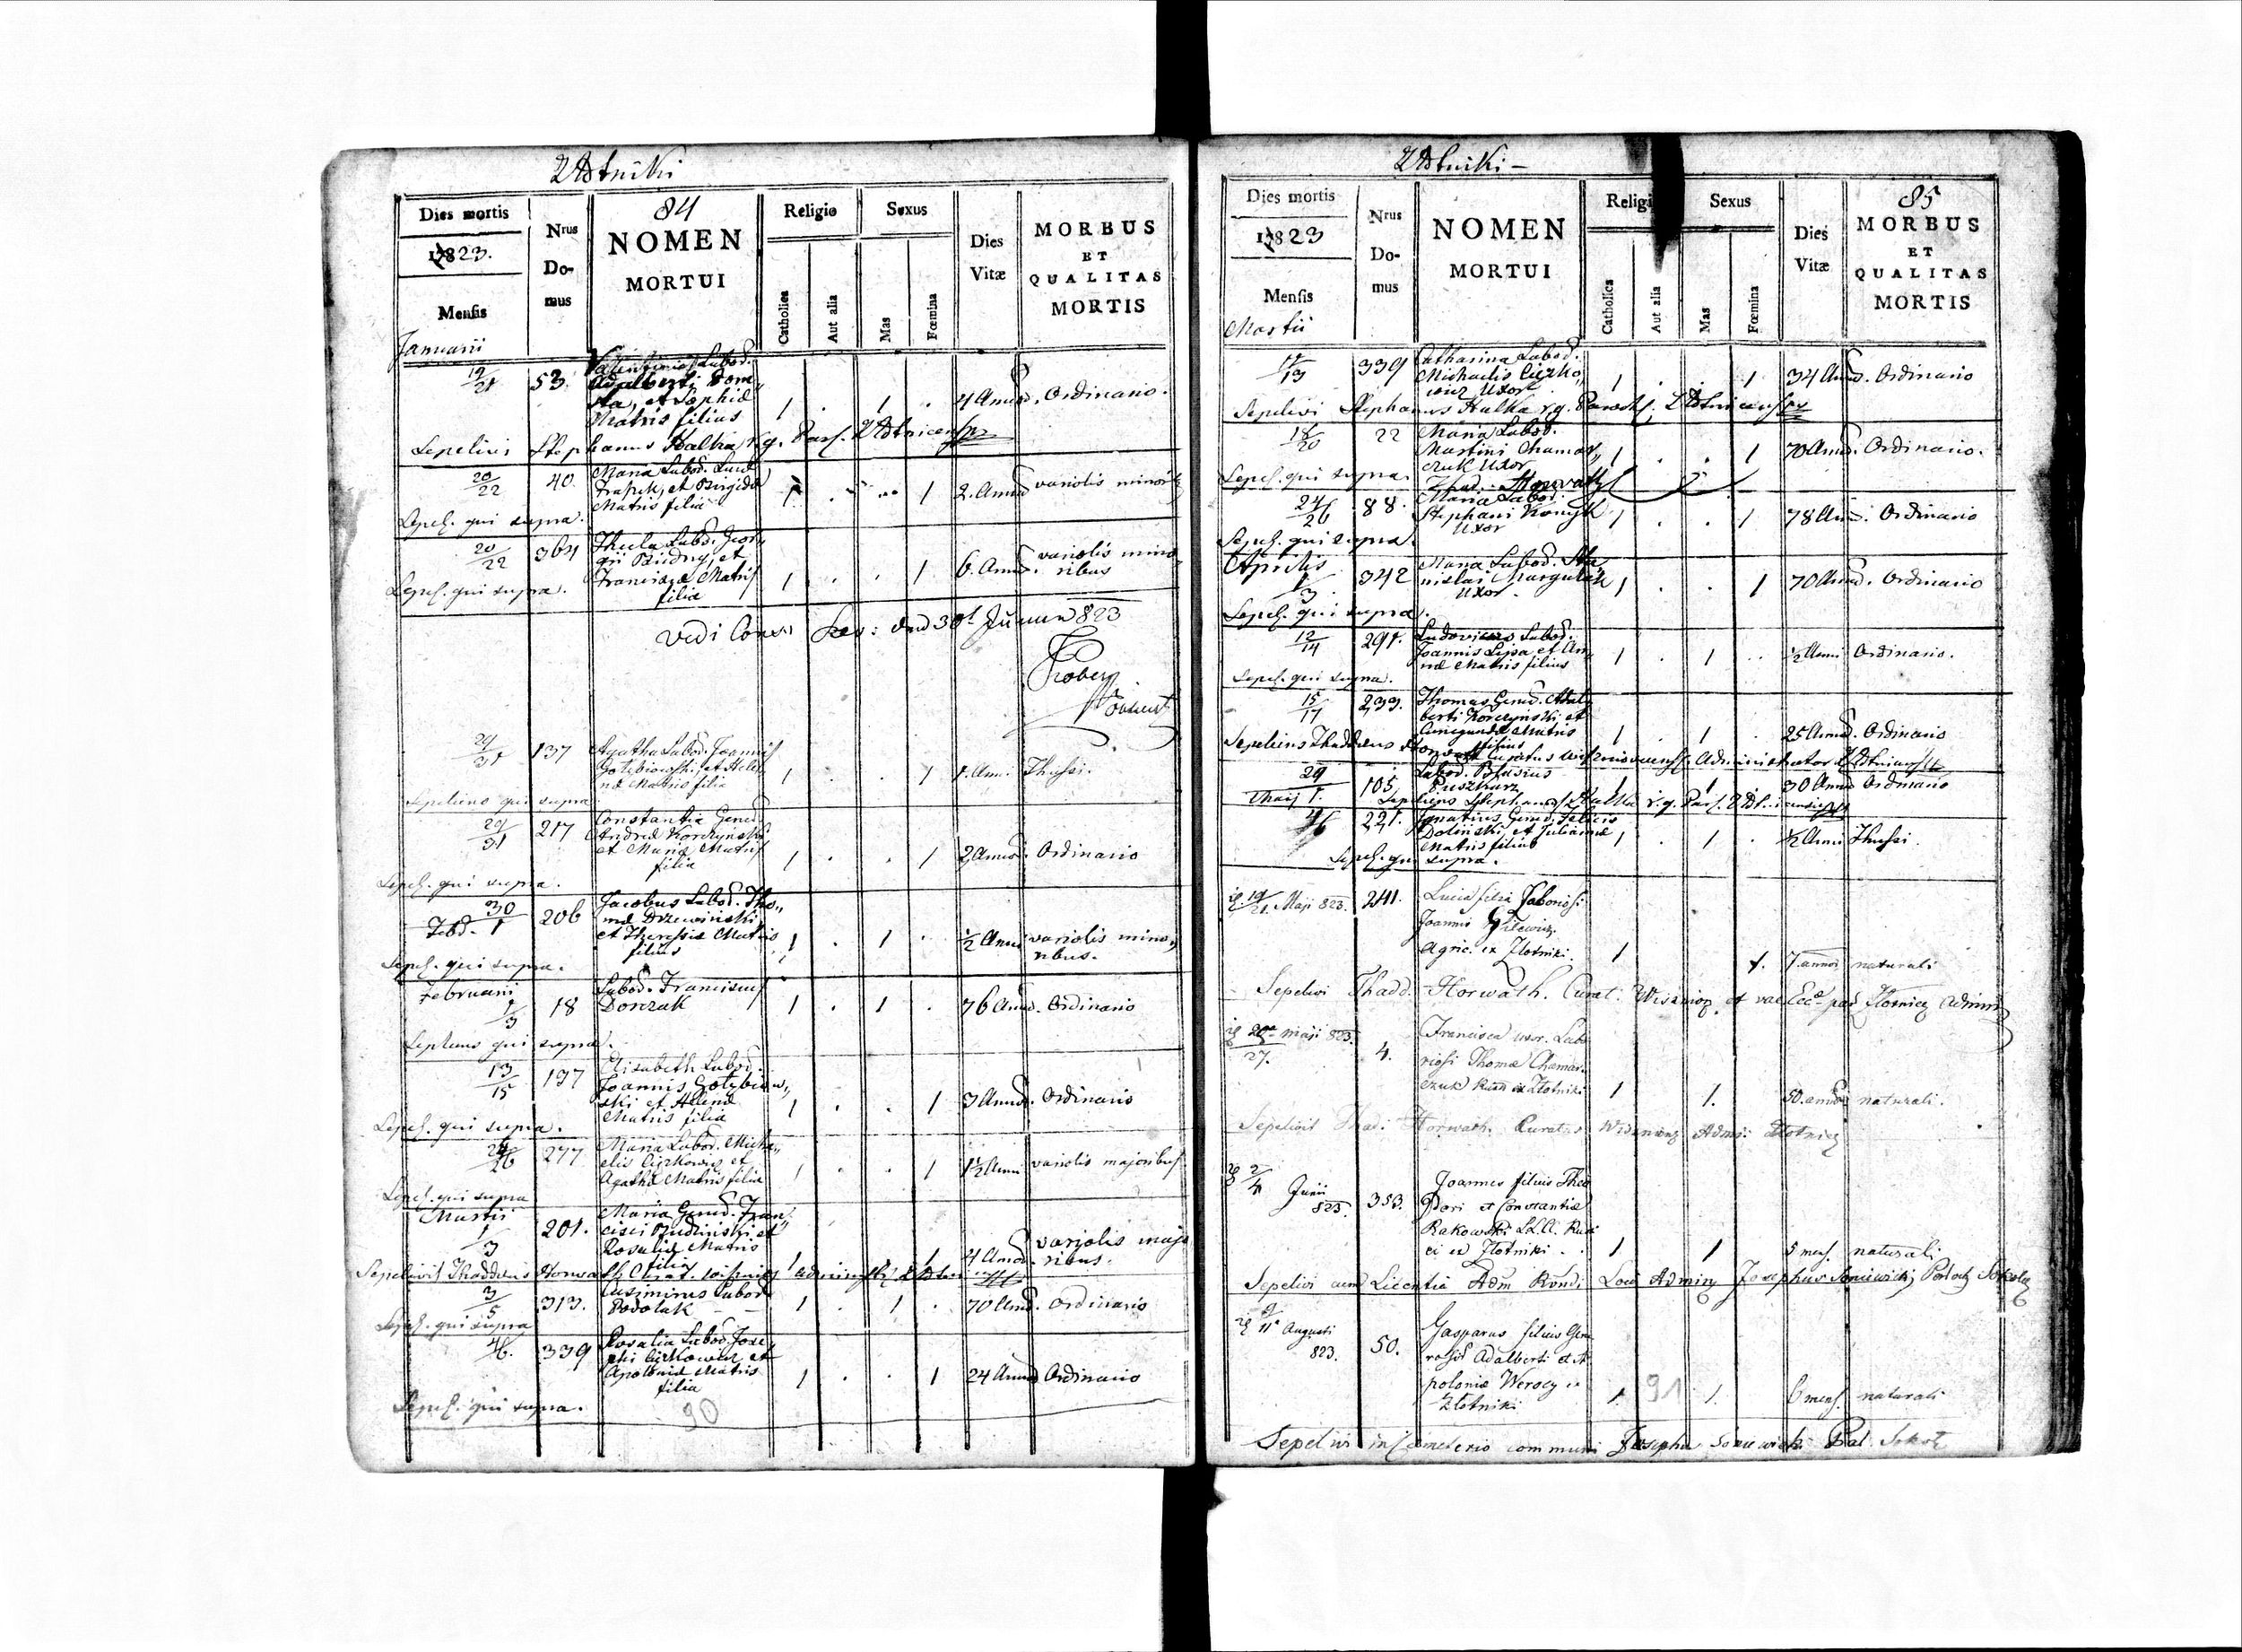 Złotniki
84
Dies mortis
1823.
Mensis
Januarii
Nrus Do-mus
NOMEN
MORTUI
Religio
Catholica
Aut alia
Sexus
Mas
Fœmina
Dies Vitæ
MORBUS
ET
QUALITAS
MORTIS
19/21 53. Valentinus Labod.
Adalberti Dom„
ka, et Sophiæ
Matris filius 1 . 1 . 4 Annor. Ordinario.
Sepelivi Stephanus Halka r.g. Par.
20/22 40. Maria Labod.
et Brigidæ
Matris filia 1 . . 1 2. Annor variolis minori
Sepel. qui supra.
20/22 364 Thecla Labod. Geor„
gii Budny, et
Franciscæ Matris
filia 1 . . 1 6. Annor. variolis mino
ribus
Sepel. qui supra.
Vidi 823
29/31 137 Agatha Labod. Joannis
Gołębiowski, et Hele„
næ Matris filia 1 . . 1 1. Anni Thussi.
Sepelivi qui supra
29/31 217 Constantia Gened.
Andreæ Korczyński
et Mariæ Matris
filia 1 . . 1 2 Annor. Ordinario
Sepel. qui supra.
30
Febr. 1 206 Jacobus Labod. Tho„
mæ Drzewiński
et Theresiæ Matris
filius 1 . 1 . ½ Anni variolis mino„
ribus.
Sepel. qui supra.
Februarii
1/3 18 Labod. Franciscus
Dorczak 1 . 1 . 76 Annor. Ordinario
Sepelivi qui supra.
13/15 137 Elisabeth Labod.
Joannis Gołębiow„
ski et Helenæ
Matris filia 1 . . 1 3 Annor. Ordinario
Sepel. qui supra.
24/26 277 Maria Labod. Micha„
elis Ciężkowicz et
Agathæ Matris filia 1 . . 1 1½ Anni variolis majoribus
Sepel. qui supra
Martii
1/3 201. Maria Gened. Fran„
cisci Budziński et
Rosaliæ Matris
filia 1 . . 1 4 Annor. variolis majo
ribus.
Sepelivit Thaddæus Horwath Curat.
3/5 313. Casimirus Labod.
Podolak 1 . 1 . 70 Annor. Ordinario
Sepel. qui supra
4/6. 339 Rosalia Labod. Jose„
phi Ciężkowicz et
Apoloniæ Matris
filia 1 . . 1 24 Annor Ordinario
Sepel. qui supra.
90
Złotniki –
85
Dies mortis
1823
Mensis
Martii
Nrus Do-mus
NOMEN
MORTUI
Religi
Catholica
Aut alia
Sexus
Mas
Fœmina
Dies Vitæ
MORBUS
ET
QUALITAS
MORTIS
339 Catharina Labod.
Michaelis Ciężko„
wicz Uxor 1 . . 1 34 Annor. Ordinario
Sepelivi Stephanus Halka r.g. Paroch.
18/20 22 Maria Labod.
Martini Chamar„
czuk Uxor 1 . . 1 70 Annor. Ordinario.
Sepel. qui supra. Thad. Horwath
24/26 88. Maria Labod.
Stephani
Uxor 1 . . 1 78 Annor. Ordinario
Sepel. qui supra.
Aprilis
1/3 342 Maria Labod. Sta„
nislai Margulak
Uxor. 1 . . 1 70 Annor. Ordinario
Sepel. qui supra.
12/14 291. Ludovicus Labod.
Joannis Lipa et An„
næ Matris filius 1 . 1 . ½ Anni Ordinario.
Sepel. qui supra.
15/17 233. Thomas Gened. Adal„
berti Korczyński et
Cunegundæ Matris
filius 1 . 1 . 25 Annor. Ordinario
Sepelivi Thaddæus Horwath Curatus Administrator
29
Maij 1. 105. Labod. Blasius
1 . 1 30 Annor Ordinario
Sepelivi Stephanus Halka r.g. Par.
4/6 221. Ignatius Gened. Felicis
Doliński, et Julianæ
Matris filius 1 . 1 . ½ Anni Thussi.
Sepel. qui supra.
19/21. Maji 823. 241. Lucia filia Laboriosi
Joannis
Agric. ex Złotniki. 1 1. 7. annor naturali
Sepelivi Thadd. Horwath. Curat.
maji 823.
27. 4. Francisca uxor. Labo
riosi Thomæ Chamar.
czuk ex Złotniki 1 1. 50. annor naturali.
Sepelivit Thad. Horwath. Curatus
2/4 Junii
823. 353. Joannes filius Theo
dori et Constantiæ
Rakowski
ex Złotniki. 1 1 5 mens. naturali
Sepelivi cum Licentia Josephus
9/11 Augusti
823. 50. Gasparus filius Gene
rosi Adalberti et A
poloniæ
Złotniki 1. 1. 6 mens. naturali
91
Sepelivi in Cemeterio communi Josephus